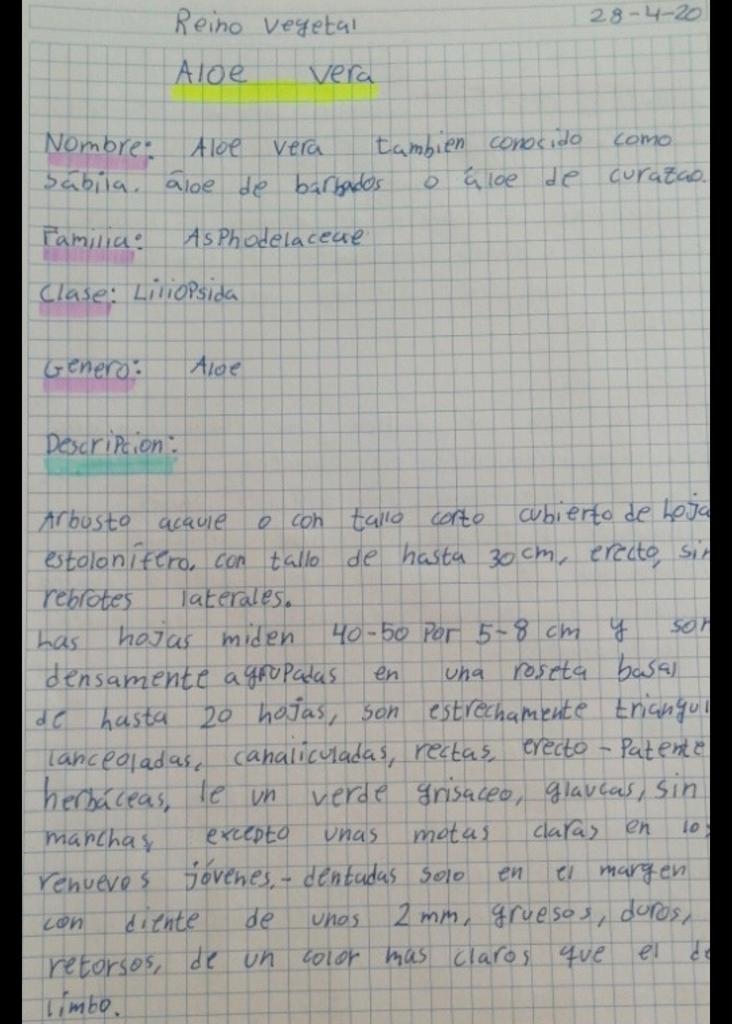 Reino vegetal
28-4-20
Aloe vera
Nombre: Aloe vera tambien conocido como
sábila. áloe de barbados o áloe de curazao.
Familia: Asphodelaceae
Clase: Liliopsida
Genero: Aloe
Descripcion:
Arbusto acaule o con tallo corto cubierto de hoja
estolonífero. con tallo de hasta 30 cm, erecto, sin
rebrotes laterales.
Las hojas miden 40-50 por 5-8 cm y son
densamente agrupadas en una roseta basal
de hasta 20 hojas, son estrechamente triangul
lanceoladas, canaliculadas, rectas, erecto - Patente
herbáceas, le un verde grisaceo, glaucas, sin
marchas, excepto unas motas claras en los
renuevos jóvenes. - dentadas solo en el margen
con diente de unos 2 mm, gruesos, duros,
retorsos, de un color mas claros que el de
limbo.